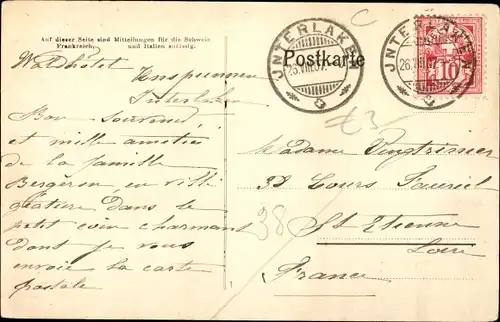 Auf dieser Seite sind Mitteilungen für die Schweiz
Frankreich, und Italien zulässig.
Postkarte
JNTERLAKEN
26.VIII.07.
JNTERLAKEN
26.VIII.07
10
Waldhôtel
Unspunnen
Interlaken
Bon souvenir
et mille amitiés
de la famille
en villé
giature dans le
petit coin charmant
dont je vous
envoie la carte
postale
Madame Vingtrinier
32 Cours Fauriel
St Etienne
Loire
France
38